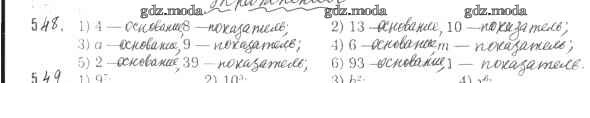 gdz.moda gdz.moda gdz.moda
548. 1) 4 – основание, 8 – показатель; 2) 13 – основание, 10 – показатель;
3) a – основание, 9 – показатель; 4) 6 – основание, m – показатель;
5) 2 – основание, 39 – показатель; 6) 93 – основание, 1 – показатель.
549 1) 9⁵· 2) 10³· 3) b²· 4)